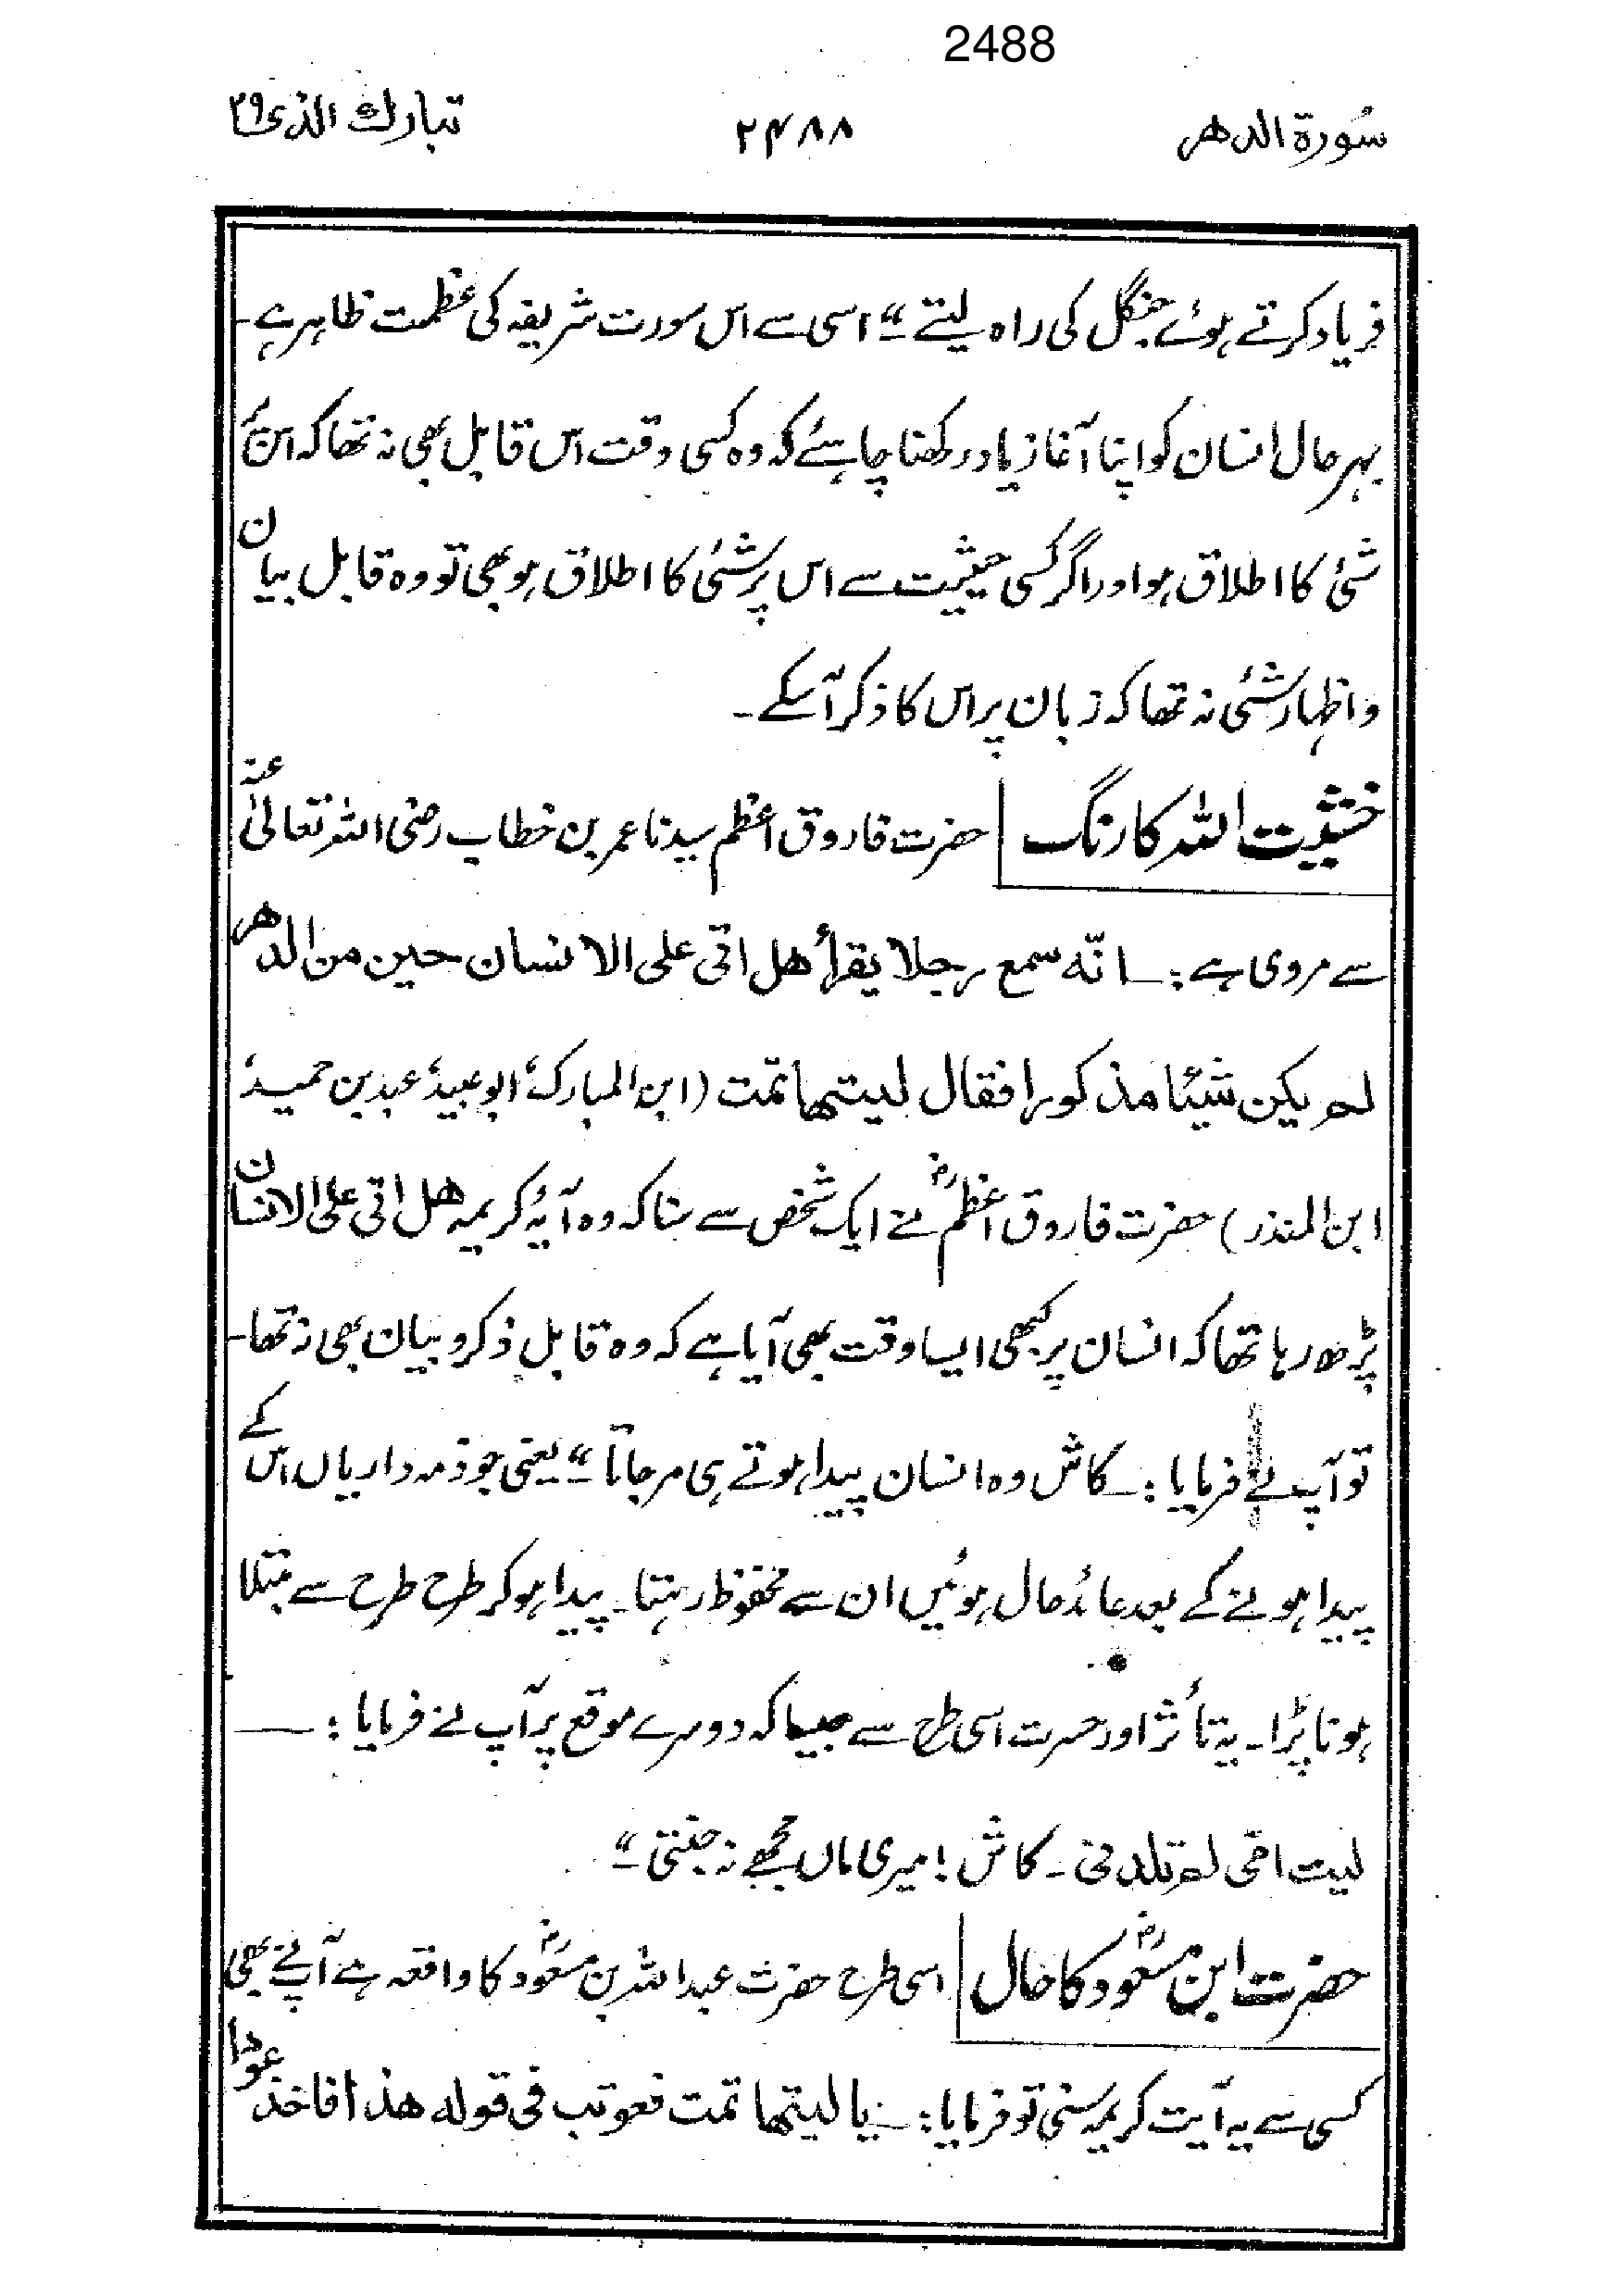 2488
سُورة الدهر ۲۴۸۸ تبارك الذی ۲۹
فریاد کرتے ہوئے جنگل کی راہ لیتے ”۔ اسی سے اس سورت شریفہ کی عظمت ظاہر ہے۔
بہرحال انسان کو اپنا آغاز یاد رکھنا چاہئے کہ وہ کسی وقت اس قابل بھی نہ تھا کہ اس پر
شئ کا اطلاق ہو اور اگر کسی حیثیت سے اس پر شئی کا اطلاق ہو بھی تو وہ قابل بیان
و اظہار شئی نہ تھا کہ زبان پر اس کا ذکر آسکے۔
خشیت اللہ کا رنگ حضرت فاروق اعظم سیدنا عمر بن خطاب رضی اللہ تعالیٰ عنہ
سے مروی ہے :۔ انّه سمع رجلا یقرأ هل اتی علی الانسان حین من الدهر
لم یکن شیئا مذکورا فقال لیتها تمت (ابن المبارک، ابو عبید، عبد بن حمید،
ابن المنذر) حضرت فاروق اعظمؓ نے ایک شخص سے سنا کہ وہ آیۂ کریمہ هل اتی علی الانسان
پڑھ رہا تھا کہ انسان پر کبھی ایسا وقت بھی آیا ہے کہ وہ قابل ذکر و بیان بھی نہ تھا۔
تو آپ نے فرمایا :۔ کاش وہ انسان پیدا ہوتے ہی مر جاتا ”۔ یعنی جو ذمہ داریاں اس کے
پیدا ہونے کے بعد عائد حال ہوئیں ان سے محفوظ رہتا۔ پیدا ہو کر طرح طرح سے مبتلا
ہونا پڑا۔ یہ تأثر اور حسرت اسی طرح سے جیسا کہ دوسرے موقع پر آپ نے فرمایا :۔
لیت امّی لم تلدنی۔ کاش! میری ماں مجھے نہ جنتی ”۔
حضرت ابن مسعودؓ کا حال اسی طرح حضرت عبداللہ بن مسعودؓ کا واقعہ ہے آپنے بھی
کسی سے یہ آیت کریمہ سنی تو فرمایا :۔ یا لیتها تمت فعوتب فی قوله هذا فاخذ عودا